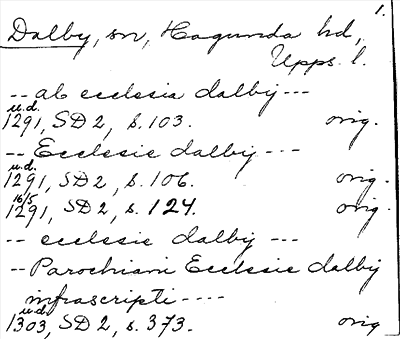 1.
Dalby, sn, Hagunda hd,
Upps. l.
-- ab ecclesia dalby ---
u.d.
1291, SD 2, s. 103. orig.
-- Ecclesie dalby - --
u.d.
1291, SD 2, s. 106. orig.
16/5
1291, SD 2, s. 124. orig.
-- ecclesie dalby ---
-- Parochiani Ecclesie dalby
infrascripti ----
u.d.
1303, SD 2, s. 373. orig